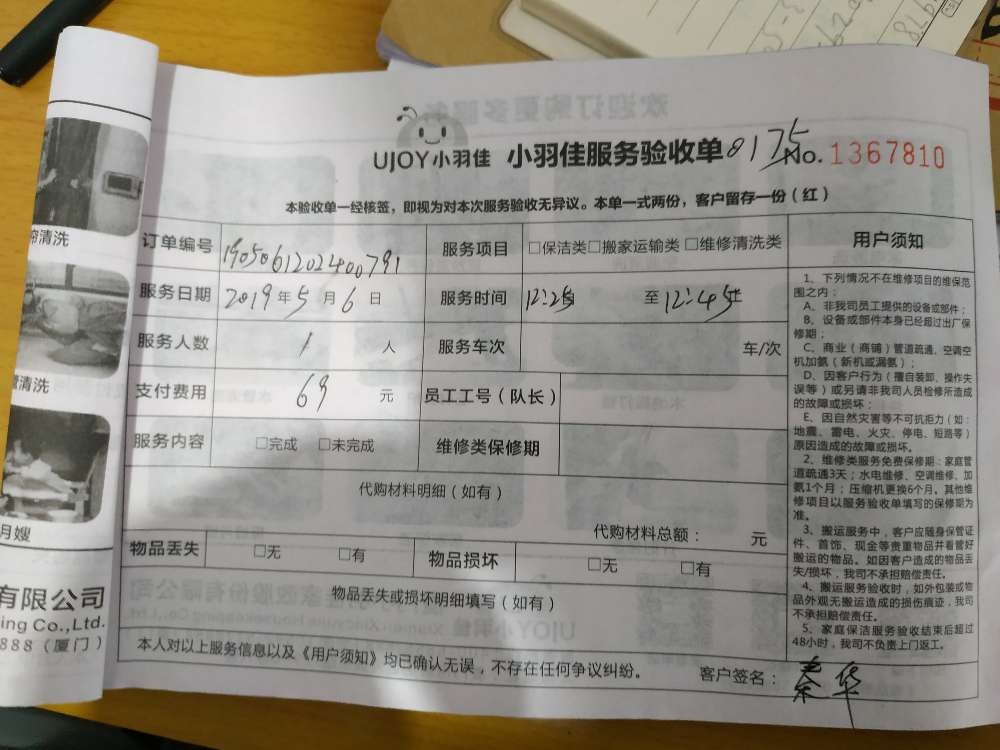 UJOY小羽佳 小羽佳服务验收单 8175 No.1367810
本验收单一经核签，即视为对本次服务验收无异议。本单一式两份，客户留存一份（红）
订单编号 1905061202400791 服务项目 □保洁类□搬家运输类□维修清洗类
服务日期 2019年5月6日 服务时间 12:25 至 12:45
服务人数 1 人 服务车次 车/次
支付费用 69 元 员工工号（队长）
服务内容 □完成 □未完成 维修类保修期
代购材料明细（如有）
代购材料总额： 元
物品丢失 □无 □有 物品损坏 □无 □有
物品丢失或损坏明细填写（如有）
本人对以上服务信息以及《用户须知》均已确认无误，不存在任何争议纠纷。
客户签名： 秦华
用户须知
1、下列情况不在维修项目的维保范
围之内：
A、非我司员工提供的设备或部件；
B、设备或部件本身已经超过出厂保
修期；
C、商业（商铺）管道疏通、空调空
机加氨（新机或漏氨）；
D、因客户行为（擅自装卸、操作失
误等）或另请非我司人员检修所造成
的故障或损坏；
E、因自然灾害等不可抗拒力（如：
地震、雷电、火灾、停电、短路等）
原因造成的故障或损坏。
2、维修类服务免费保修期：家庭管
道疏通3天；水电维修、空调维修、加
氨1个月；压缩机更换6个月。其他维
修项目以服务验收单填写的保修期为
准。
3、搬运服务中，客户应随身保管证
件、首饰、现金等贵重物品并看管好
搬运的物品。如因客户造成的物品丢
失/损坏，我司不承担赔偿责任。
4、搬运服务验收时，如外包装或物
品外观无搬运造成的损伤痕迹，我司
不承担赔偿责任。
5、家庭保洁服务验收结束后超过
48小时，我司不负责上门返工。
清洗
清洗
月嫂
有限公司
ing Co.,Ltd.
888（厦门）